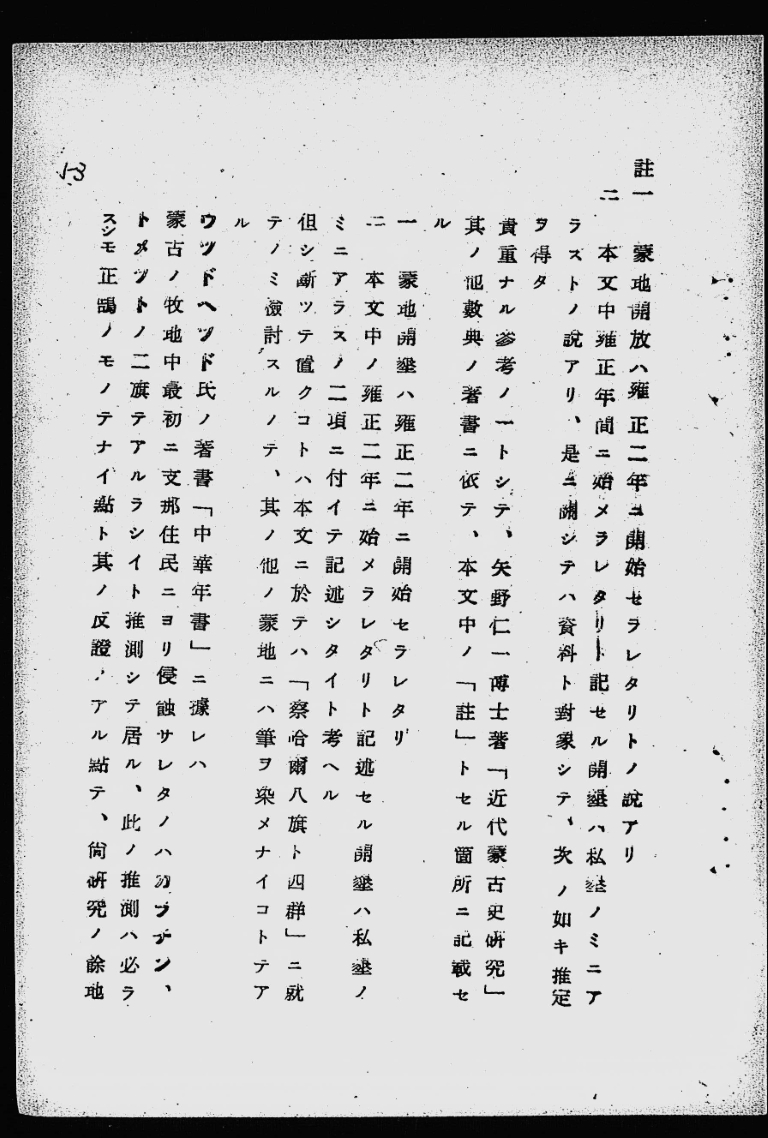 註一　蒙地開放ハ雍正二年ニ開始セラレタリトノ說アリ
二　本文中雍正年間ニ始メラレタリト記セル開墾ハ私墾ノミニア
ラストノ說アリ、是ニ關シテハ資料ト對象シテ、次ノ如キ推定
ヲ得タ
貴重ナル參考ノ一トシテ、矢野仁一博士著「近代蒙古史硏究」
其ノ他數典ノ著書ニ依テ、本文中ノ「註」トセル箇所ニ記載セ
ル
一　蒙地開墾ハ雍正二年ニ開始セラレタリ
二　本文中ノ雍正二年ニ始メラレタリト記述セル開墾ハ私墾ノ
ミニアラスノ二項ニ付イテ記述シタイト考ヘル
但シ斷ツテ置クコトハ本文ニ於テハ「察哈爾八旗ト四群」ニ就
テノミ檢討スルノテ、其ノ他ノ蒙地ニハ筆ヲ染メナイコトテア
ル
ウッドヘッド氏ノ著書「中華年書」ニ據レハ
蒙古ノ牧地中最初ニ支那住民ニヨリ侵蝕サレタノハカラチン、
トメットノ二旗テアルラシイト推測シテ居ル、此ノ推測ハ必ラ
スシモ正鵠ノモノテナイ點ト其ノ反證ノアル點テ、尙硏究ノ餘地
53